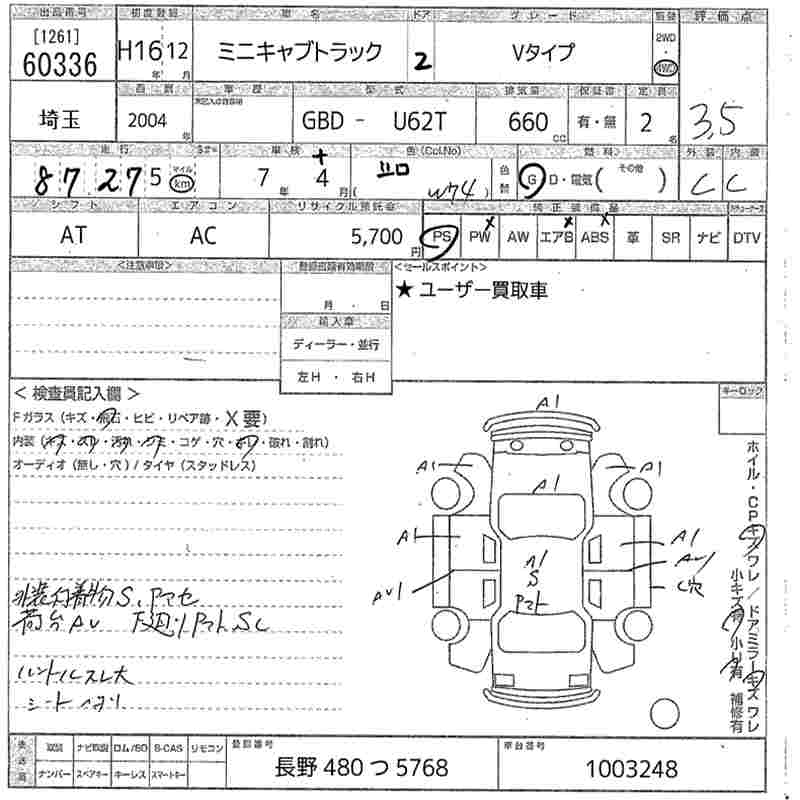 出品番号 初度登録 車名 ドア グレード 駆動 評価点
[1261]
60336 H16年12月 ミニキャブトラック 2 Vタイプ 2WD 4WD 3.5
西暦 車歴 型式 排気量 保証書 定員
埼玉 2004年 GBD - U62T 660cc 有・無 2名
走行 車検 色(Col.No) 燃料 外装 内装
87,275 マイル km 7年4月 シロ W74 色替 G D・電気( その他 ) C C
シフト エアコン リサイクル預託金 純正装備品
AT AC 5,700円 PS PW AW エアB ABS 革 SR ナビ DTV
<注意事項> 登録書類有効期限 <セールスポイント>
月・日 ★ ユーザー買取車
輸入車
ディーラー・並行
左H・右H
< 検査員記入欄 > キーロック
Fガラス(キズ・飛石・ヒビ・リペア跡・X要)
内装(キズ・スリ・汚れ・シミ・コゲ・穴・ハリ・破れ・割れ)
オーディオ(無し・穴) / タイヤ(スタッドレス)
A1
A1 A1
A1
A1 A1
A1
S
AU1 AU1
C穴
外装付着物S、
荷台AU 下廻り SC
ハンドルスレ大
シート
ホイル・CPキズワレ / ドアミラーキズワレ
小キズ有 小凹有 補修有
取説 ナビ取説 ロム/SD B-CAS リモコン 登録番号 車台番号
ナンバー スペアキー キーレス スマートキー 長野 480 つ 5768 1003248